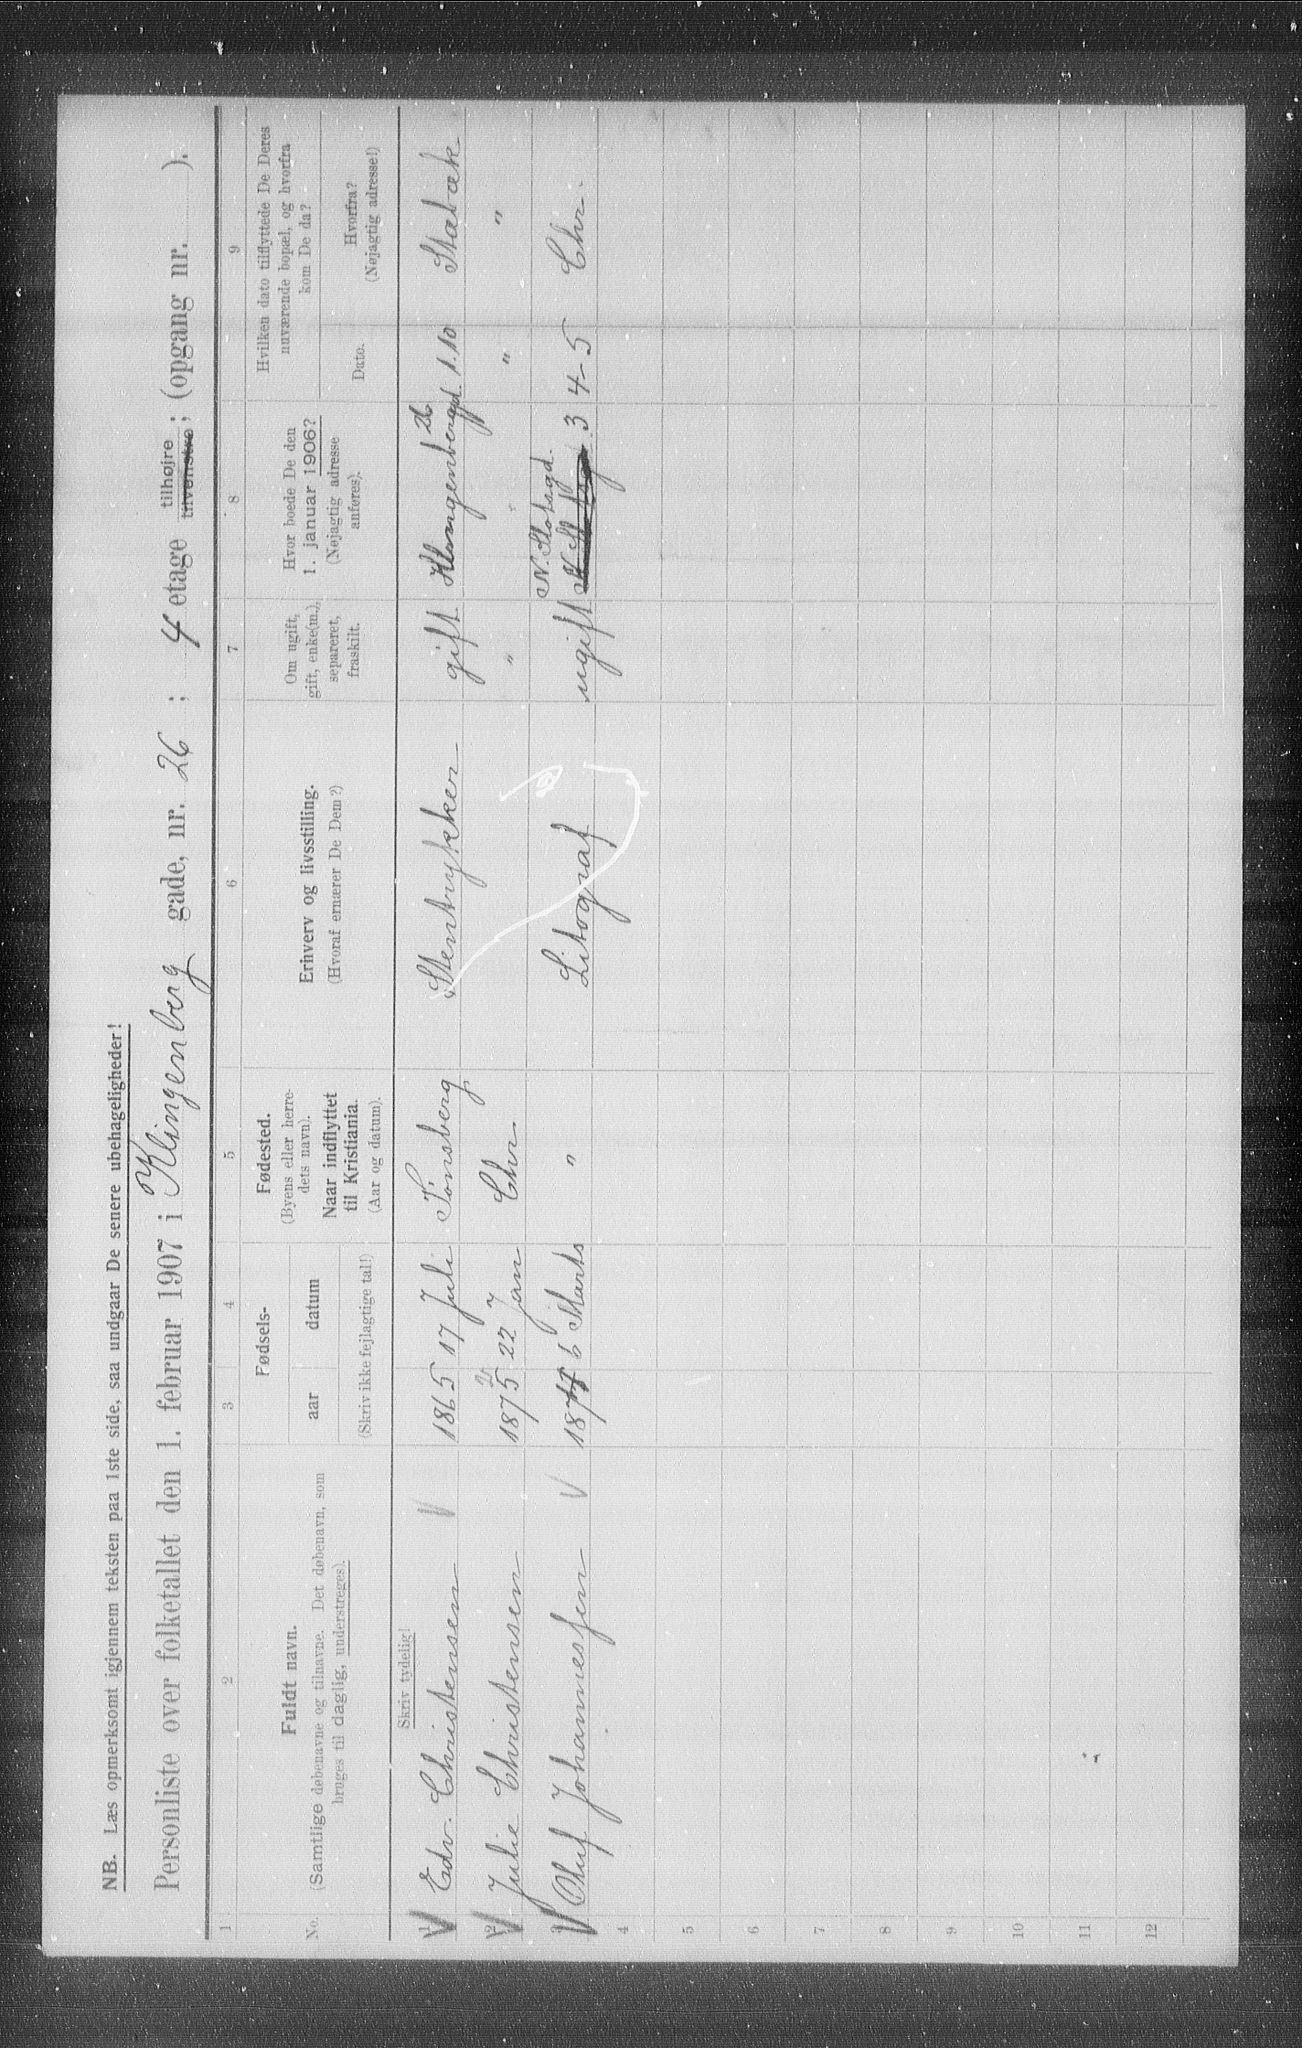 NB. Læs opmerksomt igjennem teksten paa 1ste side, saa undgaar De senere ubehageligheder!
Personliste over folketallet den 1. februar 1907 i Klingenberg gade, nr. 26 ; 4 etage tilhøjre tilvenstre; (opgang nr. ).
1 2 3 4 5 6 7 8 9
No.
Fuldt navn.
(Samtlige døbenavne og tilnavne. Det døbenavn, som
bruges til daglig, understreges).
Fødsels-
aar datum
(Skriv ikke fejlagtige tal!)
Fødested.
(Byens eller herre-
dets navn).
Naar indflyttet
til Kristiania.
(Aar og datum).
Erhverv og livsstilling.
(Hvoraf ernærer De Dem?)
Om ugift,
gift, enke(m.),
separeret,
fraskilt.
Hvor boede De den
1. januar 1906?
(Nøjagtig adresse
anføres).
Hvilken dato tilflyttede De Deres
nuværende bopæl, og hvorfra
kom De da?
Dato.
Hvorfra?
(Nøjagtig adresse!)
Skriv tydelig!
V 1 Edv. Christensen V 1865 17 Juli Tønsberg Stentrykker gift Klingenberggd 26 1.10 Stabæk
V 2 Julie Christensen 1875 22 Jan Chr " " " "
V 3 Oluf Johannessen V 187 6 Marts " Litograf ugift N. Slotsgd. 3 4-5 Chr.
4
5
6
7
8
9
10
11
12